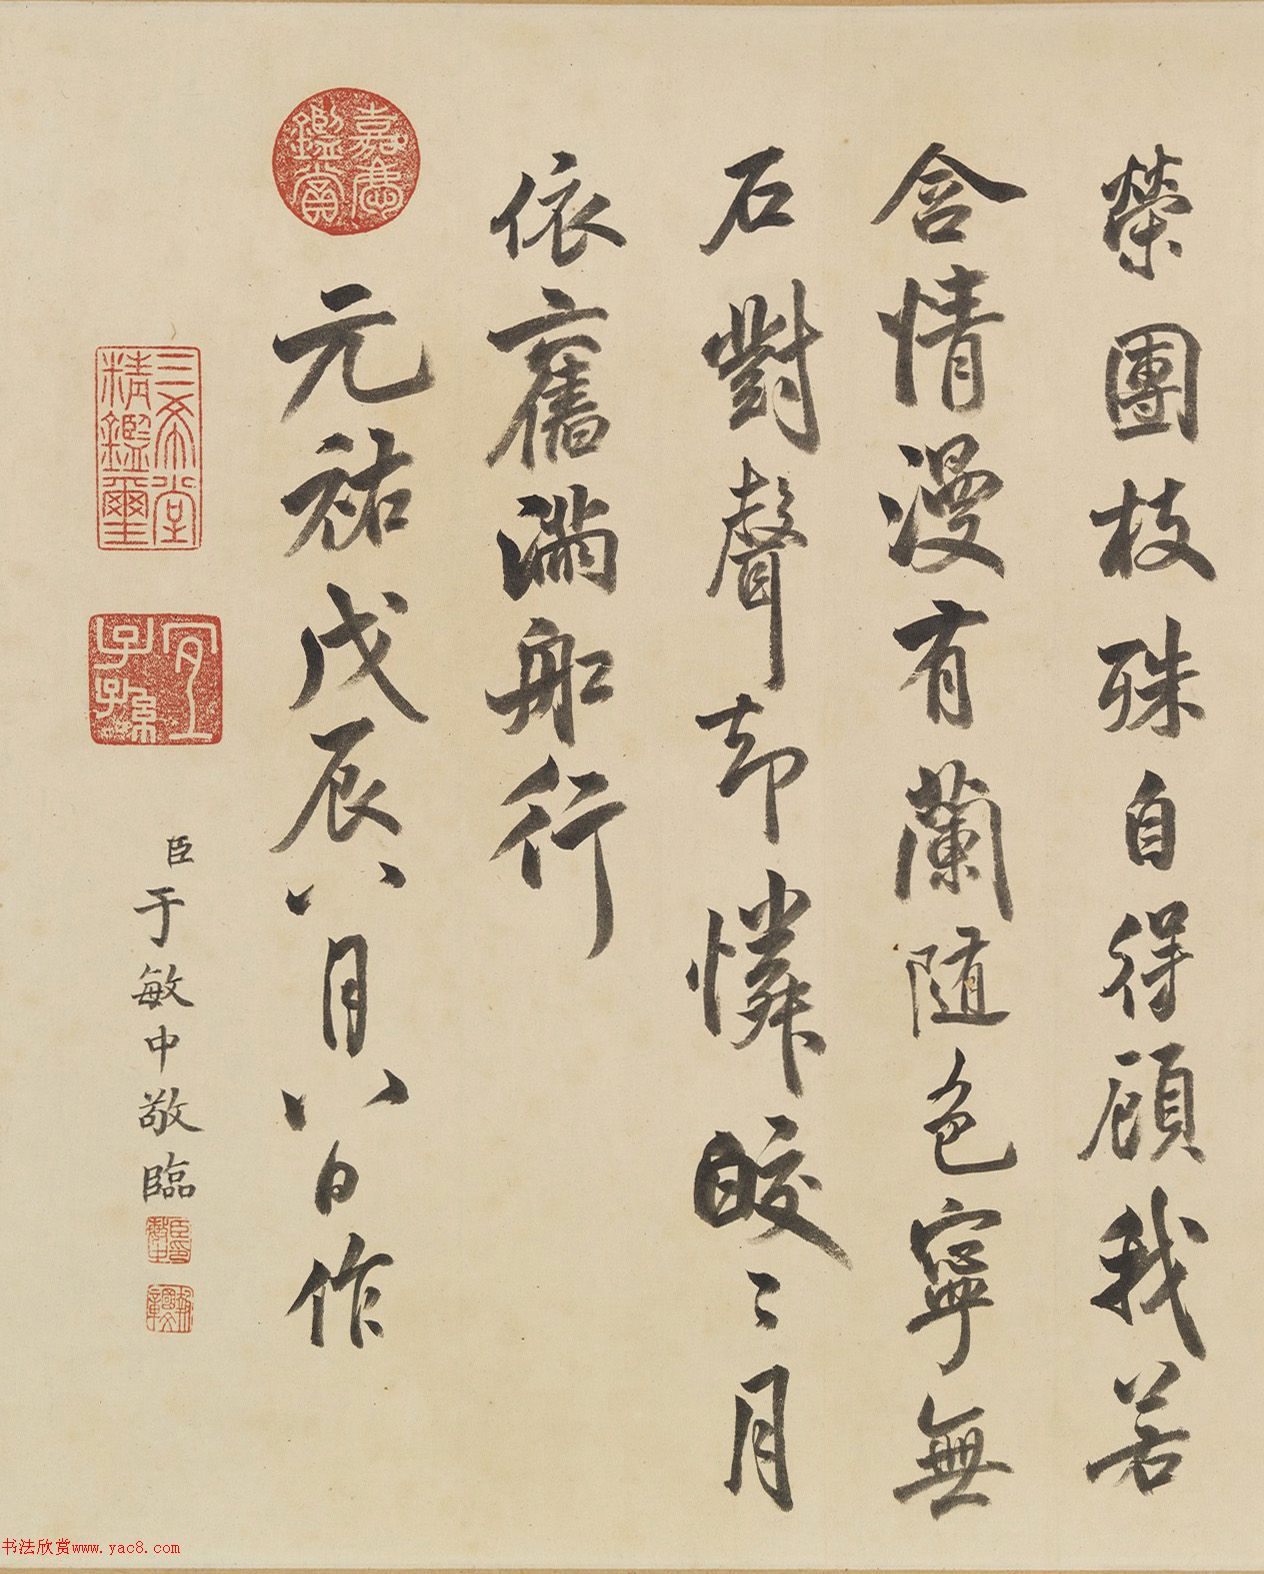 榮團枝殊自得顧我若
含情漫有蘭隨色寧無
石對聲却憐皎〻月
依舊滿舡行
嘉慶鑑賞
元祐戊辰八月八日作
三希堂精鑑璽
宜子孫
臣于敏中敬臨
书法欣赏www.yac8.com